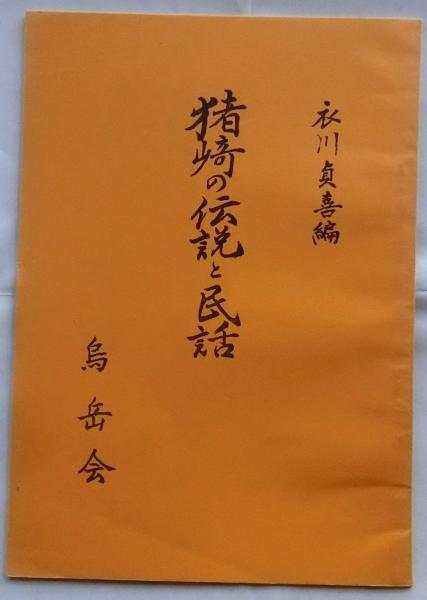 衣川貞喜編
猪崎の伝説と民話
烏岳会